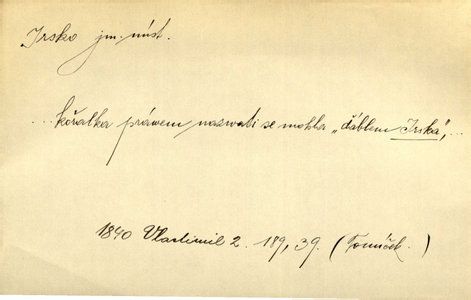 Irsko jm. míst.
... kořalka práwem nazwati se mohla „ďáblem Irska“, ...
1840 Vlastimil 2. 189, 39. (Tomíček.)